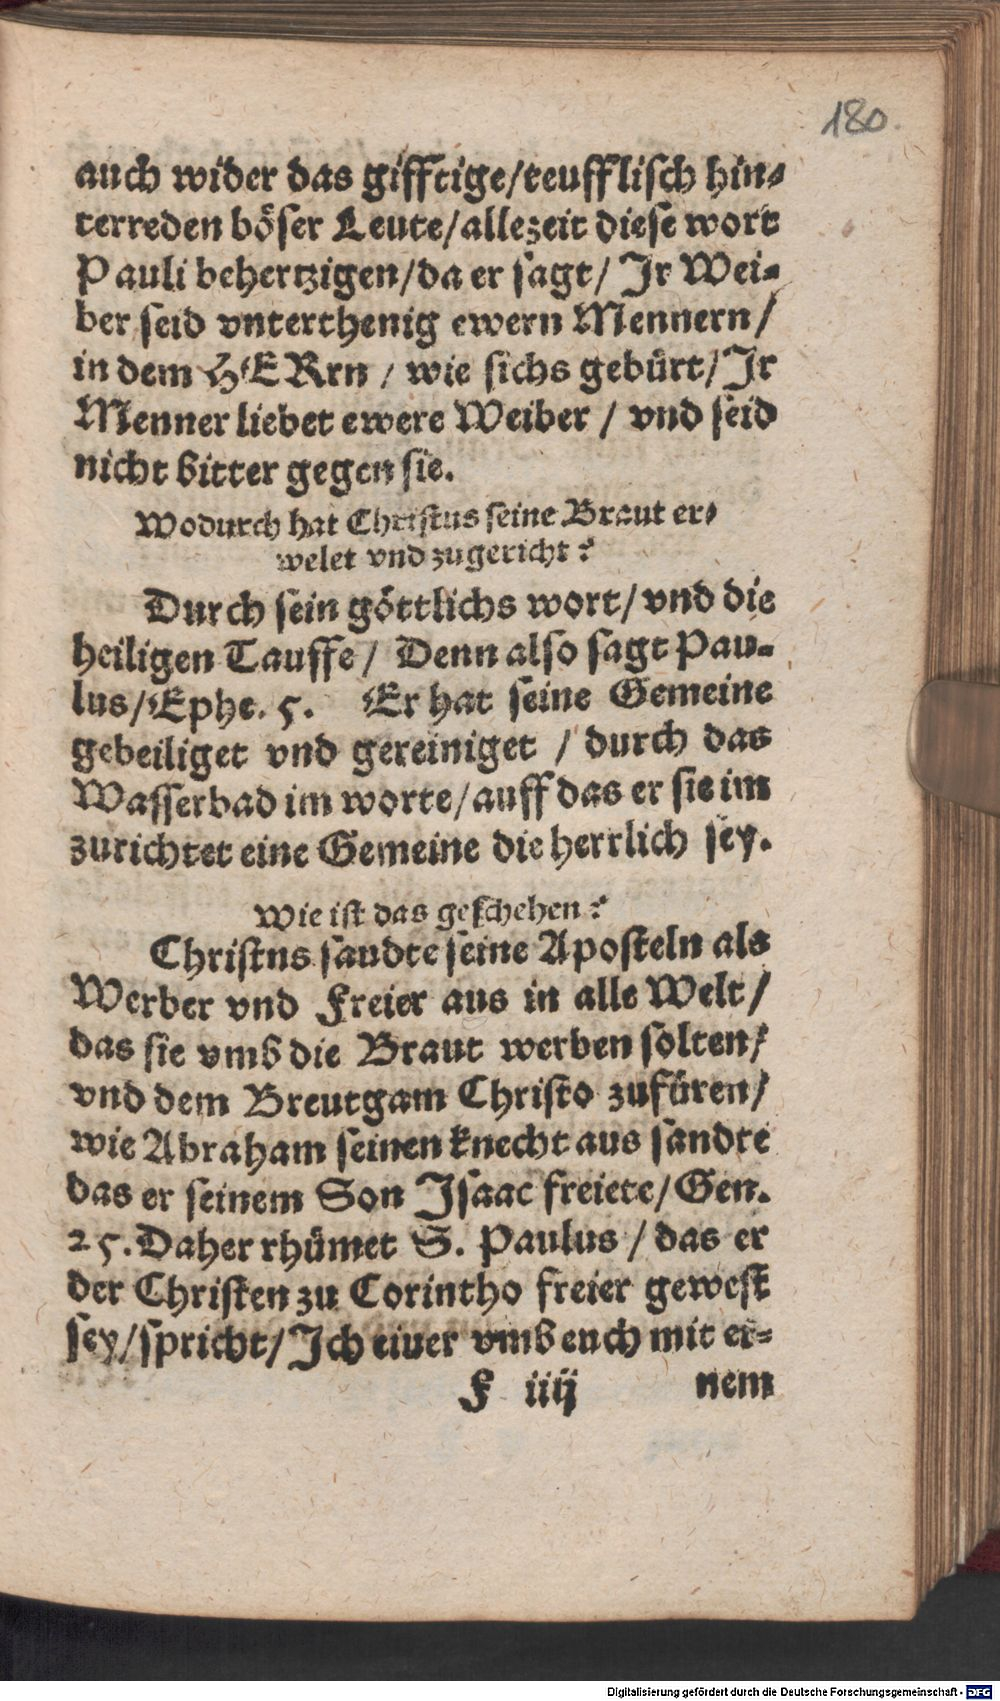 180.
auch wider das gifftige/teufflisch hin-
terreden böser Leute/allezeit diese wort
Pauli behertzigen/da er sagt/ Jr Wei-
ber seid vnterthenig ewern Mennern/
in dem HERrn / wie sichs gebürt/Jr
Menner liebet ewere Weiber / vnd seid
nicht bitter gegen sie.
Wodurch hat Christus seine Braut er-
welet vnd zugericht?
Durch sein göttlichs wort/vnd die
heiligen Tauffe/ Denn also sagt Pau-
lus/Ephe. 5. Er hat seine Gemeine
geheiliget vnd gereiniget / durch das
Wasserbad im worte/auff das er sie im
zurichtet eine Gemeine die herrlich sey.
Wie ist das geschehen?
Christns sandte seine Aposteln als
Werber vnd Freier aus in alle Welt/
das sie vmb die Braut werben solten/
vnd dem Breutgam Christo zufüren/
wie Abraham seinen knecht aus sandte
das er seinem Son Jsaac freiete/Gen.
25. Daher rhümet S. Paulus / das er
der Christen zu Corintho freier gewest
sey/spricht/Jch eiuer vmb euch mit ei-
F iiij nem
Digitalisierung gefördert durch die Deutsche Forschungsgemeinschaft - DFG